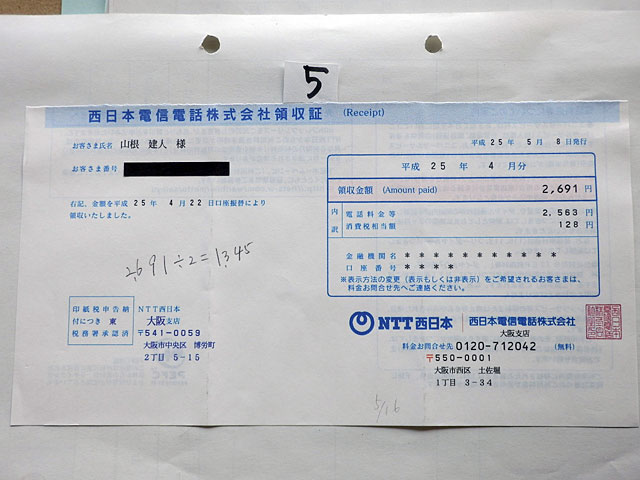 5
西日本電信電話株式会社領収証 (Receipt)
平成 25 年 5 月 8 日発行
お客さま氏名 山根 建人 様
お客さま番号
右記、金額を平成 25 年 4 月 22 日口座振替により
領収いたしました。
平成 25 年 4 月分
領収金額 (Amount paid) 2,691 円
内訳
電話料金等 2,563 円
消費税相当額 128 円
金融機関名 * * * * * * * * * * *
口座番号 * * * *
※表示方法の変更(表示もしくは非表示)をご希望されるお客さまは、
料金お問合せ先へご連絡ください。
2,691÷2=1,345
印紙税申告納
付につき 東
税務署承認済
NTT西日本
大阪支店
〒541-0059
大阪市中央区 博労町
2丁目 5-15
NTT西日本 西日本電信電話株式会社
大阪支店
料金お問合せ先 0120-712042 (無料)
〒550-0001
大阪市西区 土佐堀
1丁目 3-34
5/16